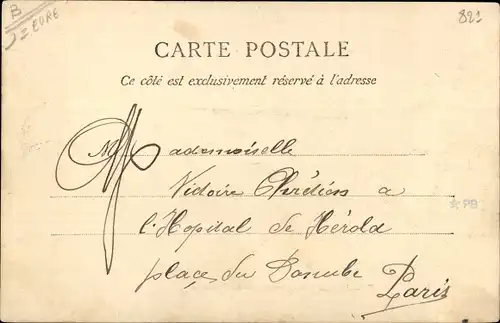 B
J = EURE
821
CARTE POSTALE
Ce côté est exclusivement réservé à l'adresse
Mademoiselle
Victoire Chrétien a
l'Hopital de Hérold
place du Danube
Paris
PB